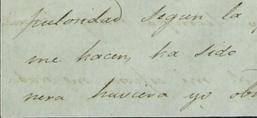 puloridad segun la
me hacen, ha sido
nera huviera yo obr